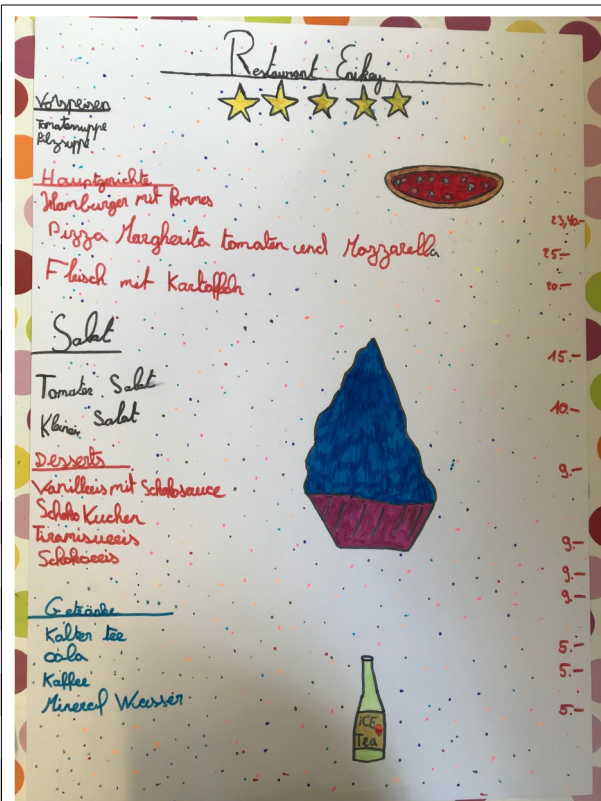 Restaurant Enikay
Vorspeisen
Tomatensuppe
Pilzsuppe
Hauptgerichte
Hamburger mit Pommes
23,40.-
Pizza Margherita tomaten und Mozzarella
25.-
Fleisch mit Kartoffeln
20.-
Salat
15.-
Tomaten Salat
10.-
Kleiner Salat
Desserts
9.-
Vanilleeis mit Schokosauce
Schoko Kuchen
Tiramisueeis
9.-
Schokoeeis
9.-
9.-
Getränke
Kalter tee
5.-
cola
5.-
Kaffee
Mineral Wasser
5.-
iCE
Tea